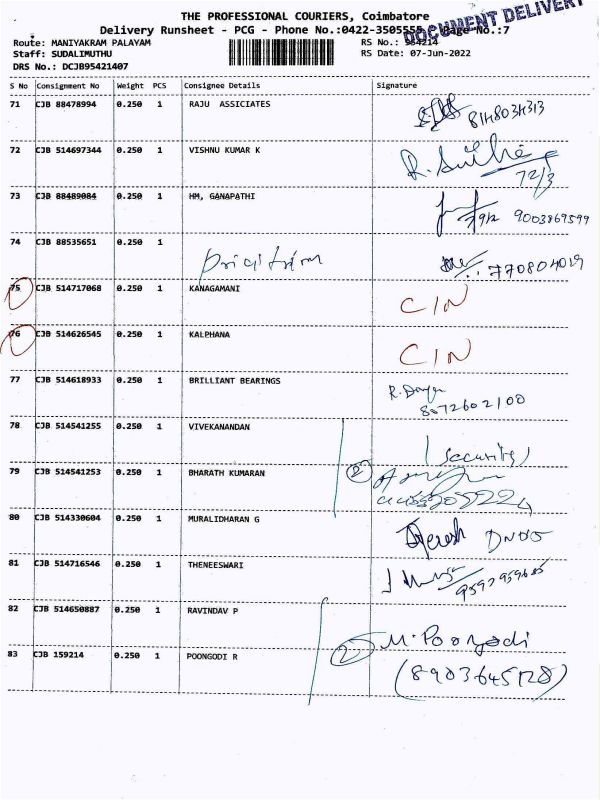 THE PROFESSIONAL COURIERS, Coimbatore
DOCUMENT DELIVERY
Delivery Runsheet - PCG - Phone No.:0422-3505555, Page No.:7
Route: MANIYAKRAM PALAYAM
RS No.: 964214
Staff: SUDALIMUTHU
RS Date: 07-Jun-2022
DRS No.: DCJB95421407
S No Consignment No Weight PCS Consignee Details Signature
71 CJB 88478994 0.250 1 RAJU ASSICIATES 8148034313
72 CJB 514697344 0.250 1 VISHNU KUMAR K
72/3
73 CJB 88489084 0.250 1 HM, GANAPATHI 9003869599
74 CJB 88535651 0.250 1 770804019
75 CJB 514717068 0.250 1 KANAGAMANI CIN
76 CJB 514626545 0.250 1 KALPHANA CIN
77 CJB 514618933 0.250 1 BRILLIANT BEARINGS
8072602100
78 CJB 514541255 0.250 1 VIVEKANANDAN (Security)
79 CJB 514541253 0.250 1 BHARATH KUMARAN 2
80 CJB 514330604 0.250 1 MURALIDHARAN G
81 CJB 514716546 0.250 1 THENEESWARI
82 CJB 514650887 0.250 1 RAVINDAV P
83 CJB 159214 0.250 1 POONGODI R 2 M. Poongodi
(8903645128)